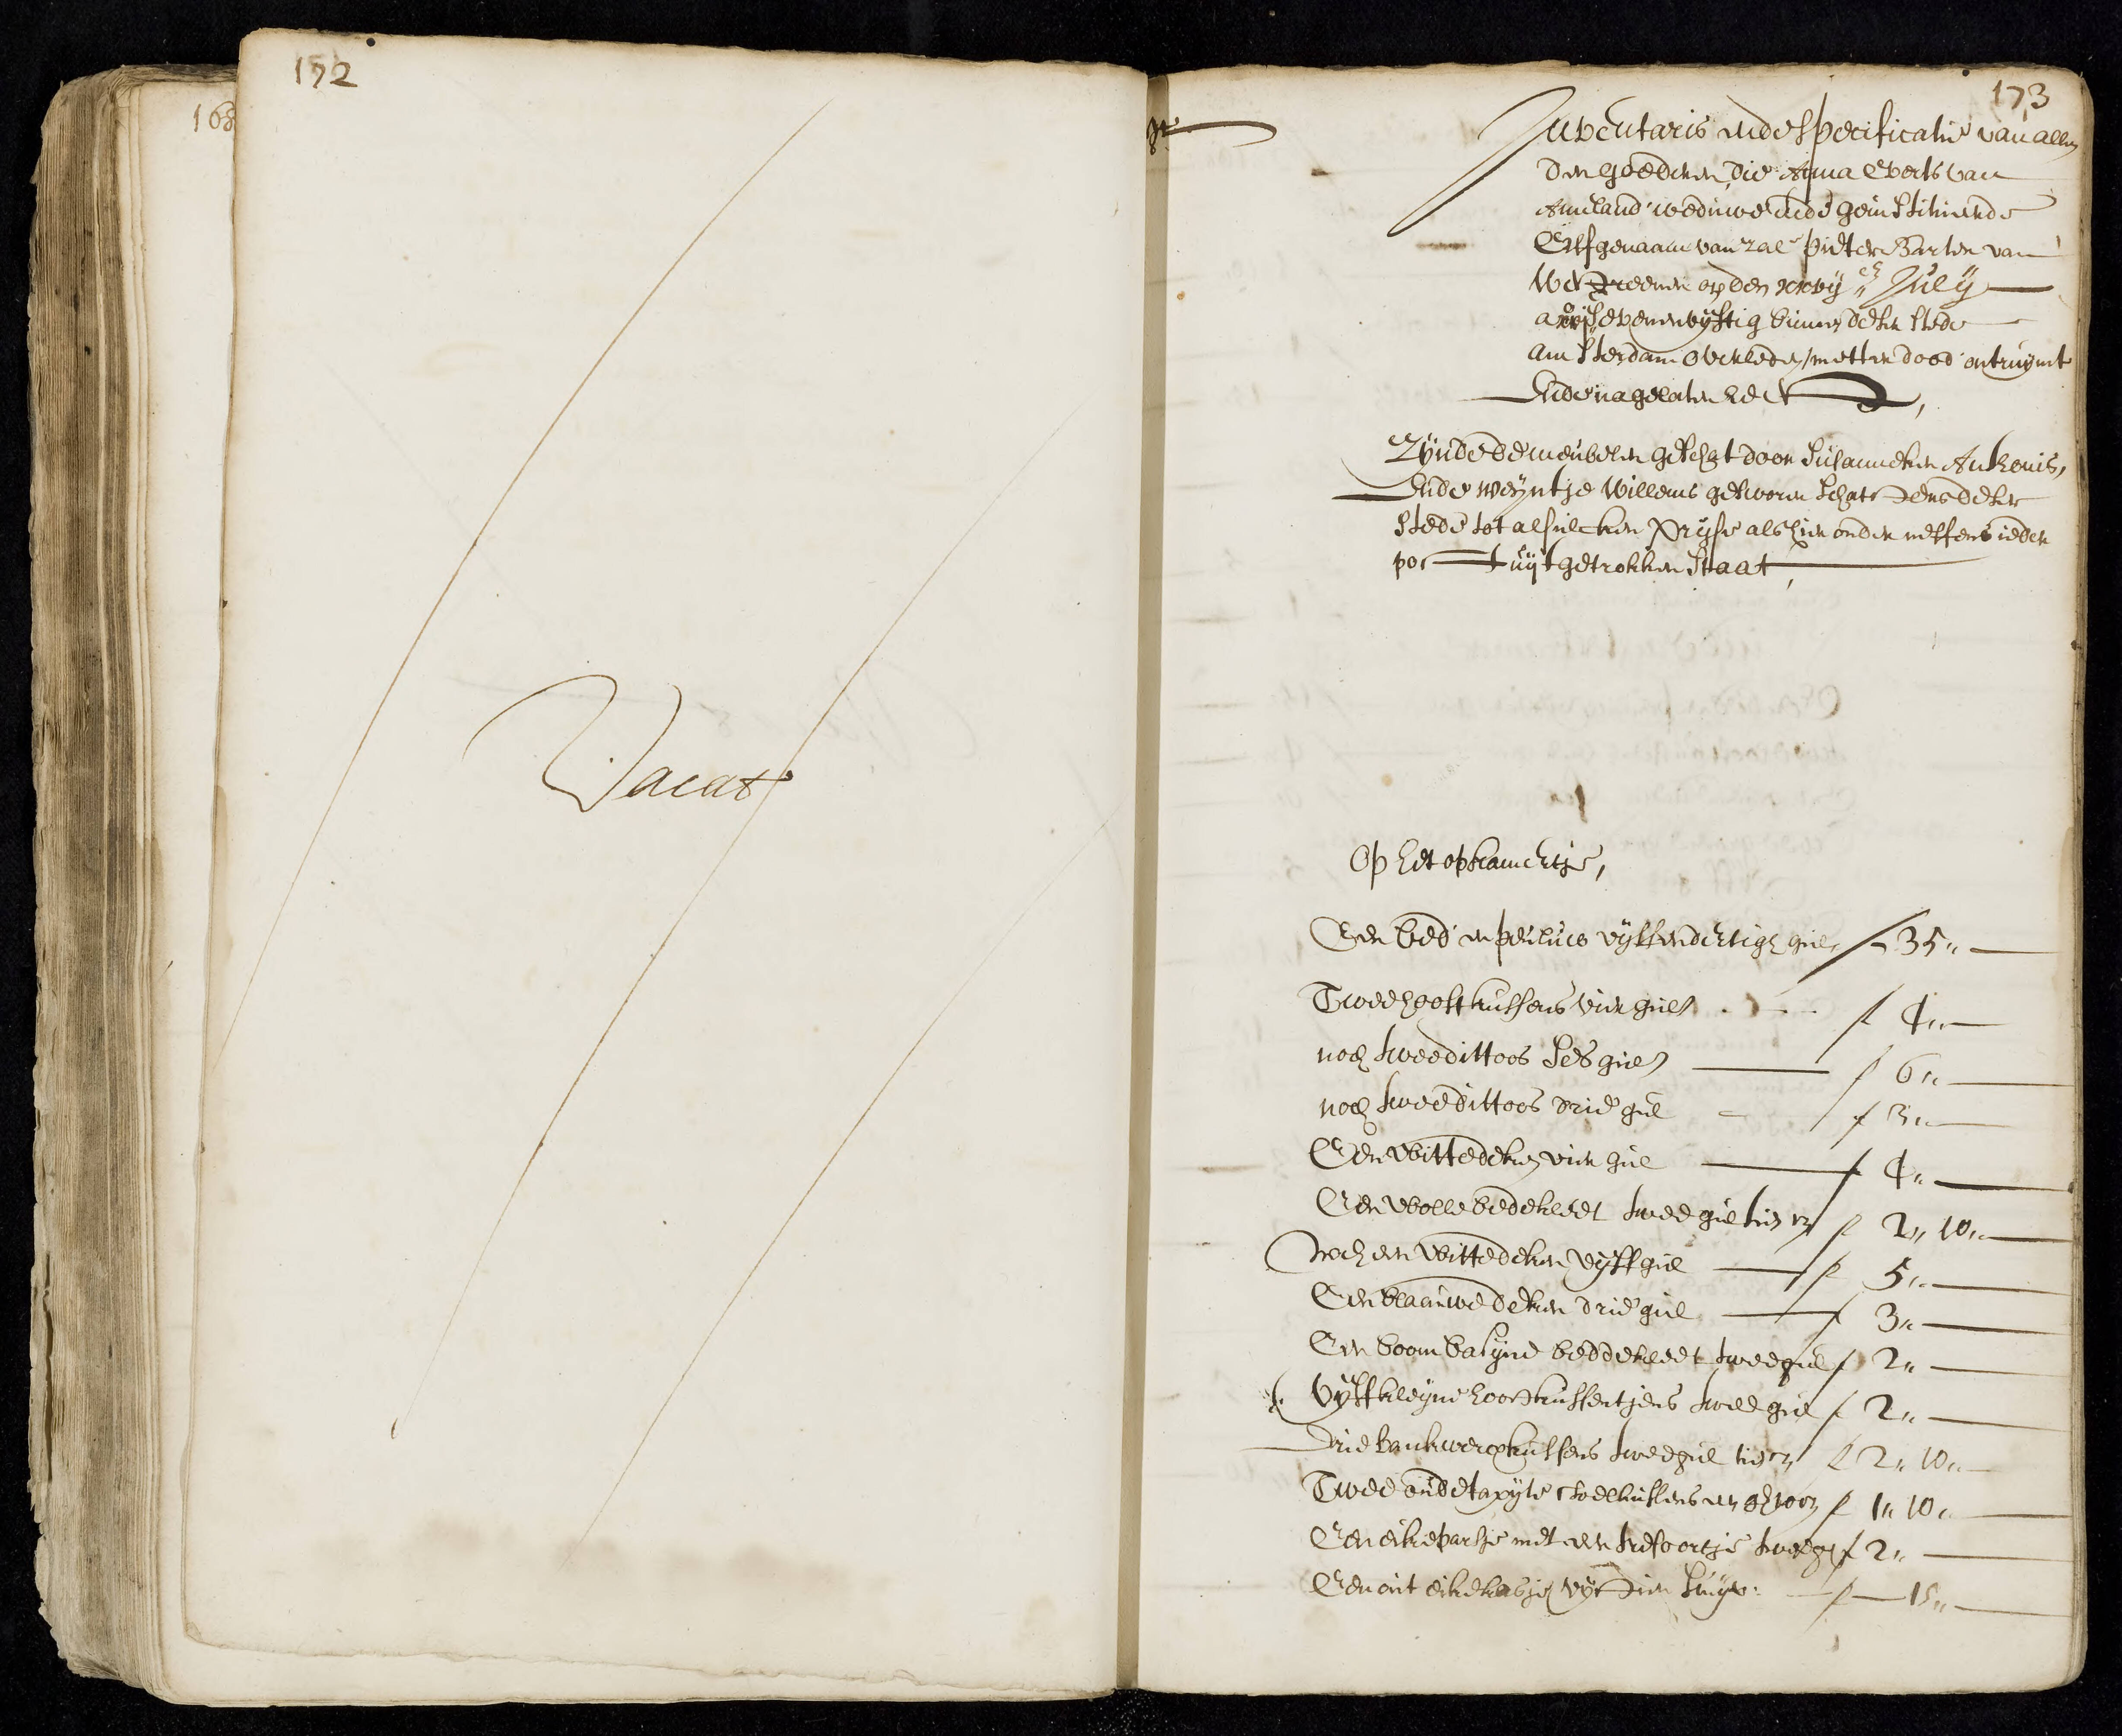 172
168
Vacat
173
Inventaris ende specificatie van allen
den goederen, die Anna Everts van
Ameland weduwe ende geinstitueerde
Erffgenaam van zal.r Pieter Barten van
op den xxvij.en July
seven en vijftig binnen deser stede
Amsterdam overleden, metter dood ontruijmt
Ende nagelaten heeft,
Zijnde de meubelen geschat door Susanneken Ankonis,
Ende Weijntje Willems gesworen schatsters deser
stede tot alsulcken prijse als hier onder neffens ieder
post uijtgetrokken staat,
Op het opkamertje,
Een bed en peuluw vijffendertigh gul. f 35 "
Twee hooft kussens vier gul f 4 "
noch twee dittoos ses gul f 6 "
noch twee dittoos drie gul f 3 "
Een witte deken vier gul f 4 "
Een wolle bedekleet twee gul tien st f 2 " 10 "
noch een witte deken vijff gul f 5 "
Een blaauwe deken drie gul f 3 "
Een boombasijne beddekleet twee gul f 2 "
Vijff kleijne oorkussentjens twee gul f 2 "
Drie bankwerckkussens twee gul tien st f 2 " 10 "
Twee oude tapijte stoelkussens f 1 " 10 "
Een eike parsje met een tresoortje twee g f 2 "
Een out eike kasje vijftien stuijv: f 15 "